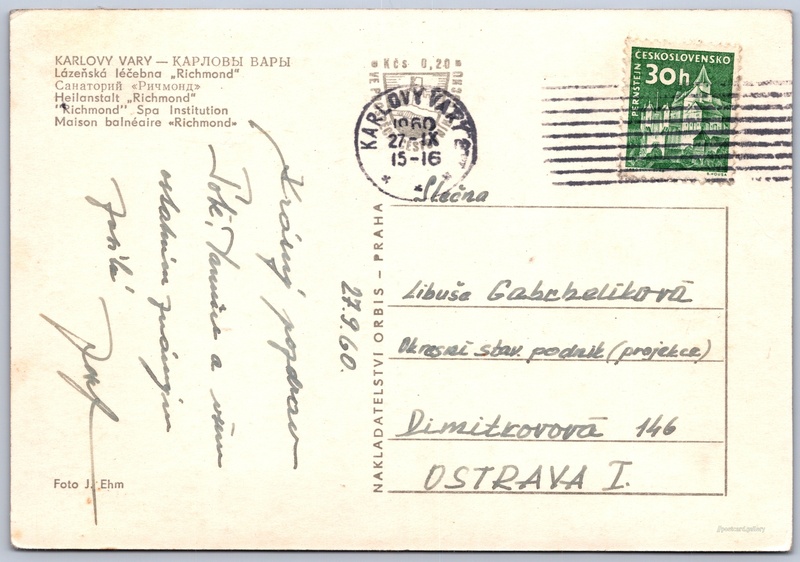 KARLOVY VARY — КАРЛОВЫ ВАРЫ
Lázeňská léčebna „Richmond“
Санаторий «Ричмонд»
Heilanstalt „Richmond“
"Richmond" Spa Institution
Maison balnéaire «Richmond»
Krásný pozdrav
Tobě, a všem
ostatním známým
27.9.60.
Foto J. Ehm
NAKLADATELSTVÍ ORBIS – PRAHA
Kčs 0,20
KARLOVY VARY
1960
27-IX
15-16
ČESKOSLOVENSKO
30h
PERNŠTEJN
Slečna
Libuše Gabrhelíková
Okresní stav. podnik (projekce)
Dimitrovová 146
OSTRAVA I.